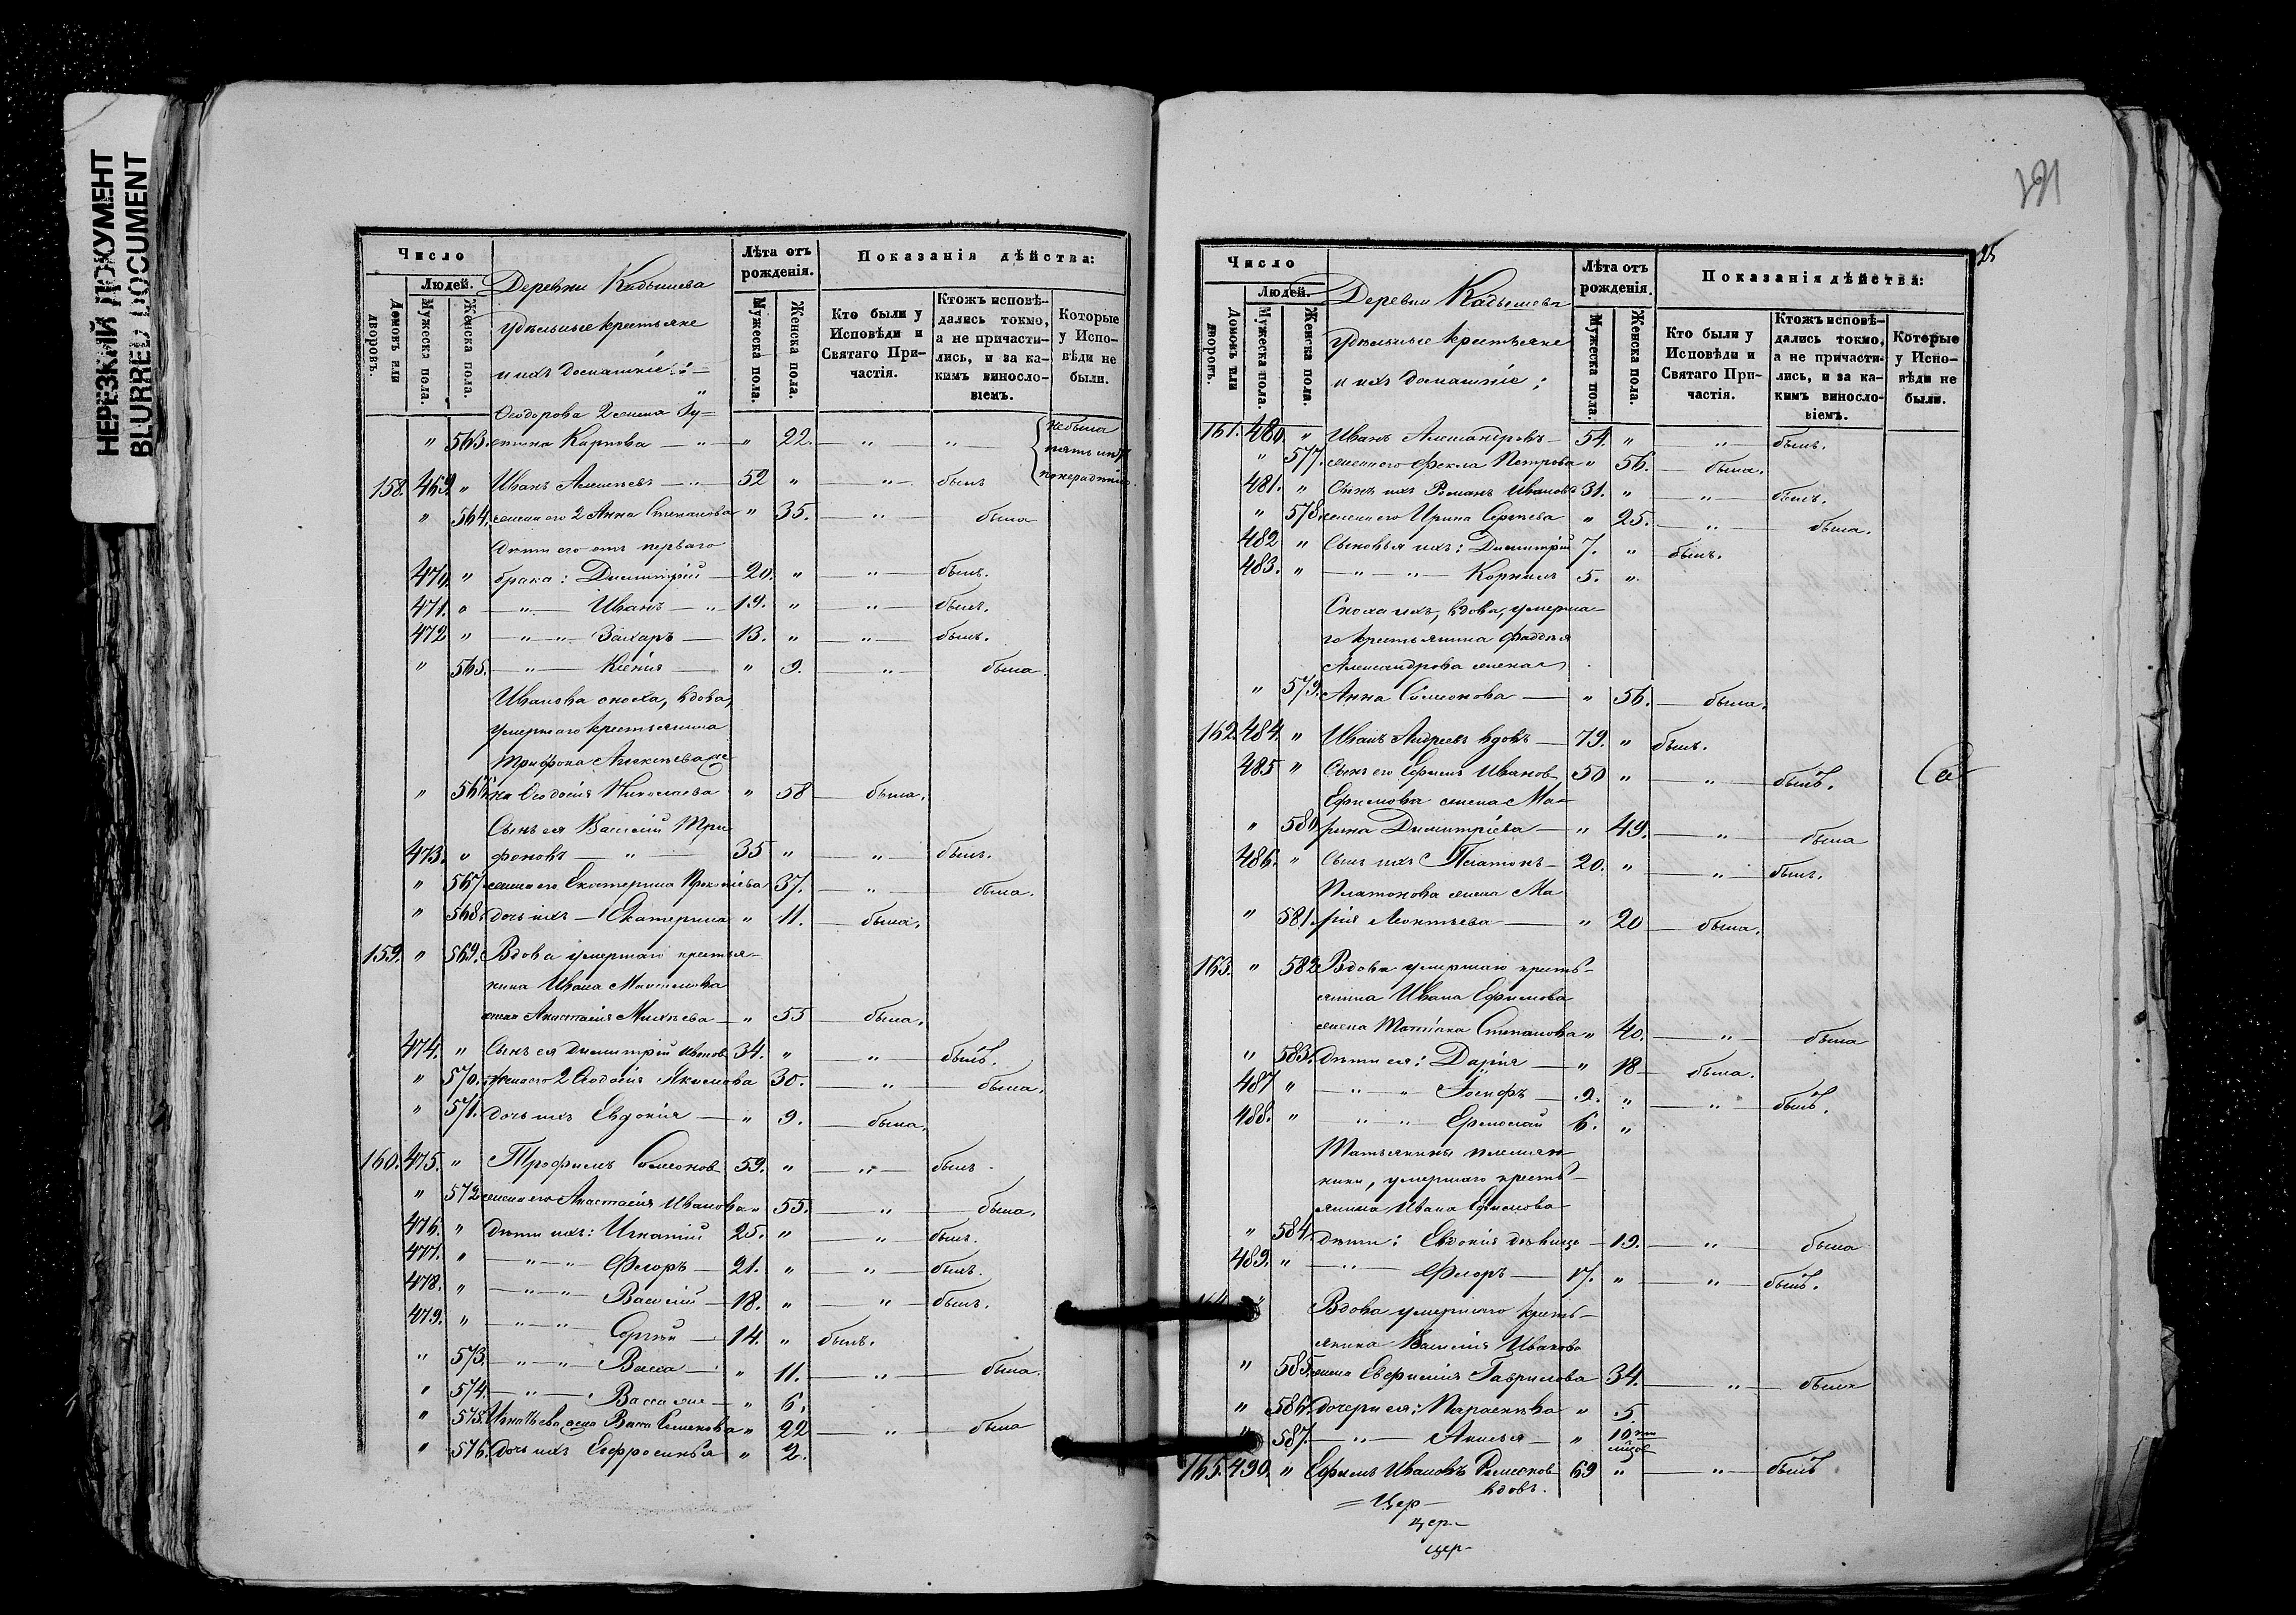 НЕРЕЗКИЙ ДОКУМЕНТ
BLURRED DOCUMENT
Число
Людей.
Домовъ или дворовъ.
Мужеска пола.
Женска пола.
Деревни Кадышева
удѣльные крестьяне
и ихъ домашніе:
Лѣта отъ рожденія.
Мужеска пола.
Женска пола.
Показанія дѣйства:
Кто были у Исповѣди и Святаго Причастія.
Ктожъ исповѣдались токмо, а не причастились, и за какимъ винословіемъ.
Которые у Исповѣди не были.
Ѳеодорова 2 жена Іу=
" 563. Карпова — " — " 22. — " — " — не была
158. 469. " Иванъ Алексѣевъ — " — 52 " — " — былъ
" 564. жена его 2 Анна Степанова " 35. — " — была
Дѣти его отъ перваго
470. " брака: Димитрій — 20. " — " — былъ.
471. " — " — Иванъ — " 19. " — " — былъ.
472 " — " — " — Захаръ — 13. " — " — былъ.
" 565. — " — Ксенія — " 9. — " — была.
Иванова сноха, вдова,
умершаго крестьянина
Трифона Алексѣева же
" 566. на Ѳеодосія Николаева " 58 — была.
Сынъ ея Василій Три
473. " фоновъ — " — 35 " — " — былъ.
" 567. жена его Екатерина Прокопіева 37. — " — была.
" 568. дочь ихъ — Екатерина " 11. — была.
159. " 569. Вдова умершаго крестья-
нина Ивана Максимова
жена Анастасія Михѣева — " 55 — была.
474. " Сынъ ея Димитрій Иванов 34. " — " — былъ.
" 570. жена его 2 Ѳеодосія Якимова 30. — " — была.
" 571. дочь ихъ Евдокія — " 9. — была.
160. 475. " Трофимъ Симеонов 59. " — " — былъ.
" 572 жена его Анастасія Иванова " 55. — " — была.
476. " дѣти ихъ: Игнатій 25. " — " — былъ.
477. " — " — " — Флоръ — 21. " — " — былъ.
478. " — " — " — Василій — 18. " — " — былъ.
479. " — " — " — Сергѣй — 14. " былъ.
" 573. — " — " — Васса — " 11. — " — была.
" 574. — " — Васса же — " 6.
" 575. Игнатьева жена Васса Семенова " 22 — " — была
" 576. Дочь ихъ Евфросинья " 2.
191
25
Число
Людей.
Домовъ или дворовъ.
Мужеска пола.
Женска пола.
Деревни Кадышева
удѣльные крестьяне
и ихъ домашніе;
Лѣта отъ рожденія.
Мужеска пола.
Женска пола.
Показанія дѣйства:
Кто были у Исповѣди и Святаго Причастія.
Ктожъ исповѣдались токмо, а не причастились, и за какимъ винословіемъ.
Которые у Исповѣди не были.
161. 480. " Иванъ Александровъ — 54. " — " — былъ.
" 577. жена его Фекла Петрова " 56. — была.
481. " Сынъ ихъ Романъ Ивановъ 31. " — " — былъ.
" 578. жена его Ирина Сергѣева " 25. — " — была.
482 " Сыновья ихъ: Димитрій 7. " — былъ.
483. " — " — " — Корнилъ 5. "
Сноха ихъ, вдова, умерша-
го крестьянина Фаддея
Александрова жена
" 579. Анна Симеонова — " 56. — была.
162. 484. " Иванъ Андреевъ вдовъ — 79. " былъ.
485 " Сынъ его Ефимъ Иванов 50 " — " — былъ.
Ефимова жена Ма-
" 580. рина Димитріева — " 49. — " — была
486. " Сынъ ихъ Платонъ — 20. " — " — былъ.
Платонова жена Ма
" 581. рія Леонтьева — " 20 — была.
163. " 582 Вдова умершаго кресть-
янина Ивана Ефимова
жена Татіана Степанова " 40. — " — была
" 583. Дѣти ея: Дарія — " 18 — была.
487 " — " — " Іосифъ — 9. " — " — былъ.
488. " — " — " — Ермолай 6. "
Татьянины племян-
ники, умершаго кресть-
янина Ивана Ефимова
" 584. дѣти: Евдокія дѣвица — 19. — " — была
489. " — " — Флоръ — 17. " — " — былъ.
Вдова умершаго кресть-
янина Василія Иванова
" 585. жена Евфимія Гаврилова 34. — " — была
" 586. дочери ея: Параскева " 5.
" 587. — " — Акилья — " 10
165. 490. " Ефимъ Ивановъ Симеонов 69 " — " — былъ
вдовъ.
= Цер —
цер —
цер —